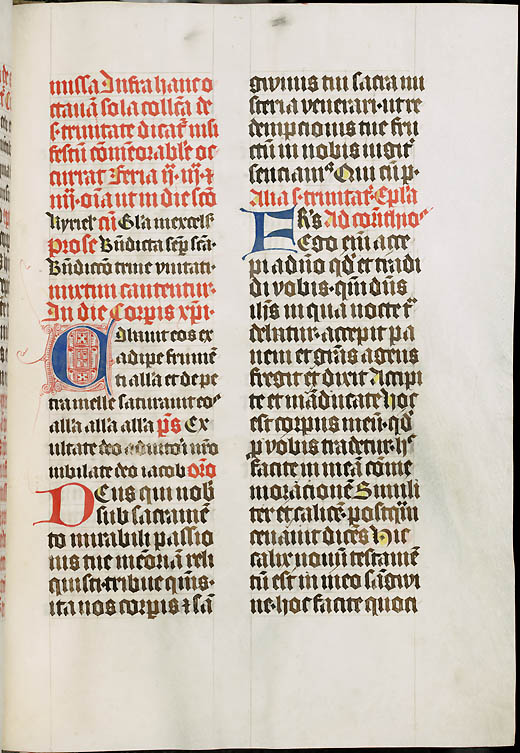 missa Infra hanc o
ctauā sola collcā de
s. trinitate dicat᷑ nisi
festū cōmemorabłe oc
currat Feria ij. iij. ⁊
iiij. oīa ut in die sco
kyriel᷑ cū Gła in excels᷑
Prose Bn̄dicta semp᷑ scā.
Bn̄dictō trine vnitati.
mixtim cantentur.
In die Corpis xp̄i.
Cibauit eos ex
adipe frumē
ti alla et de pe
tra melle saturauit eos
alla alla alla p̄s Ex
ultate deo adiutori nr̄o
iubilate deo iacob orō
Deus qui nob
sub sacramē
to mirabili passio
nis tue memōriā reli
quisti. tribue qm̄s.
ita nos corpis ⁊ sā
gwinis tui sacra mi
steria venerari. ut re
dempcionis tue fru
ctū in nobis iugit᷑
senciam᷑ Qui cū p.
Alia s. trinitat᷑ Epl̄a
FRs Ad corinthios
Ego em̄ acce
pi a dn̄o qd᷑ et tradi
di vobis. qm̄ dn̄s
ih̄s in qua nocte
debatur. accepit pa
nem et grās agens
fregit et dixit Accipi
te et māducate hoc
est corpus meū. qd᷑
p vobis tradetur. hc̄
facite in meā cōme
moracionē Simili
ter et calicē. postq̄m
cenauit dicēs Hic
calix nouū testamē
tū est in meo sāgwi
ne. hoc facite quoci